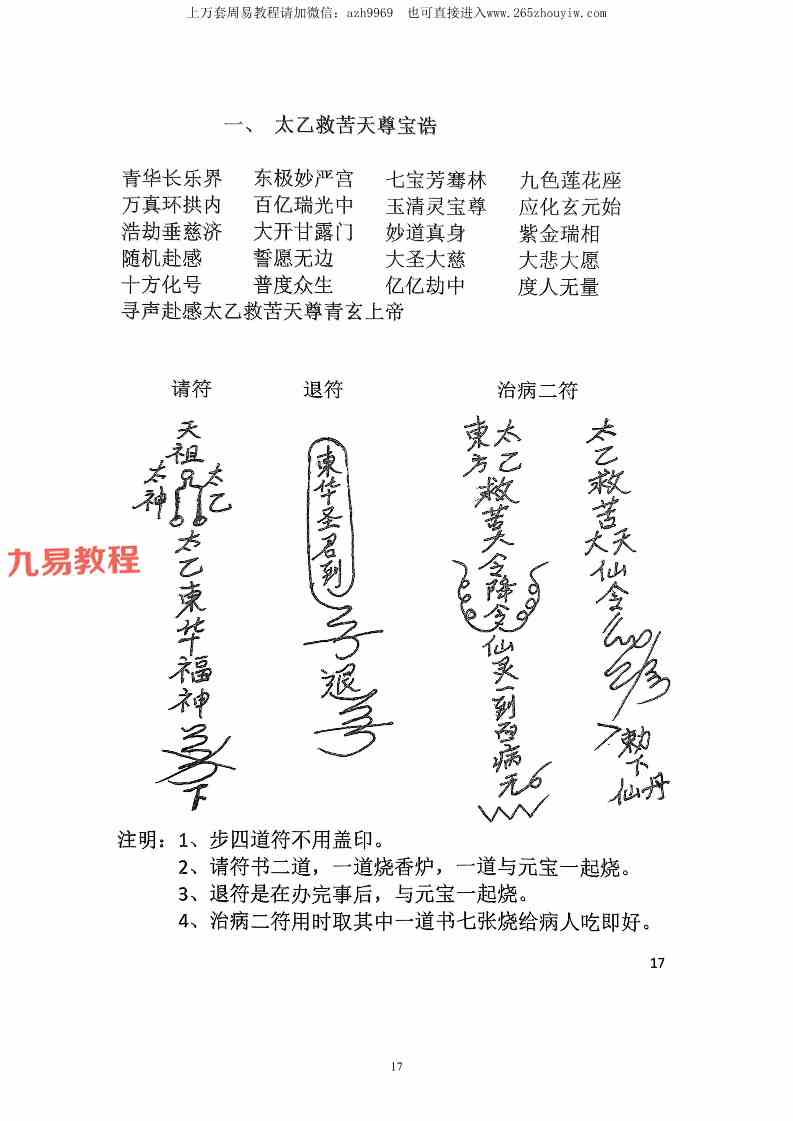 上万套周易教程请加微信：azh9969 也可直接进入www.265zhouyiw.com
一、 太乙救苦天尊宝诰
青华长乐界 东极妙严宫 七宝芳骞林 九色莲花座
万真环拱内 百亿瑞光中 玉清灵宝尊 应化玄元始
浩劫垂慈济 大开甘露门 妙道真身 紫金瑞相
随机赴感 誓愿无边 大圣大慈 大悲大愿
十方化号 普度众生 亿亿劫中 度人无量
寻声赴感太乙救苦天尊青玄上帝
请符 退符 治病二符
天祖
太神
太乙
太乙東华福神
下
東华圣君到
退
太乙救苦
東方
令降
仙灵一到百病无
太乙救苦
大天仙令
勅下仙丹
九易教程
注明：1、步四道符不用盖印。
2、请符书二道，一道烧香炉，一道与元宝一起烧。
3、退符是在办完事后，与元宝一起烧。
4、治病二符用时取其中一道书七张烧给病人吃即好。
17
17